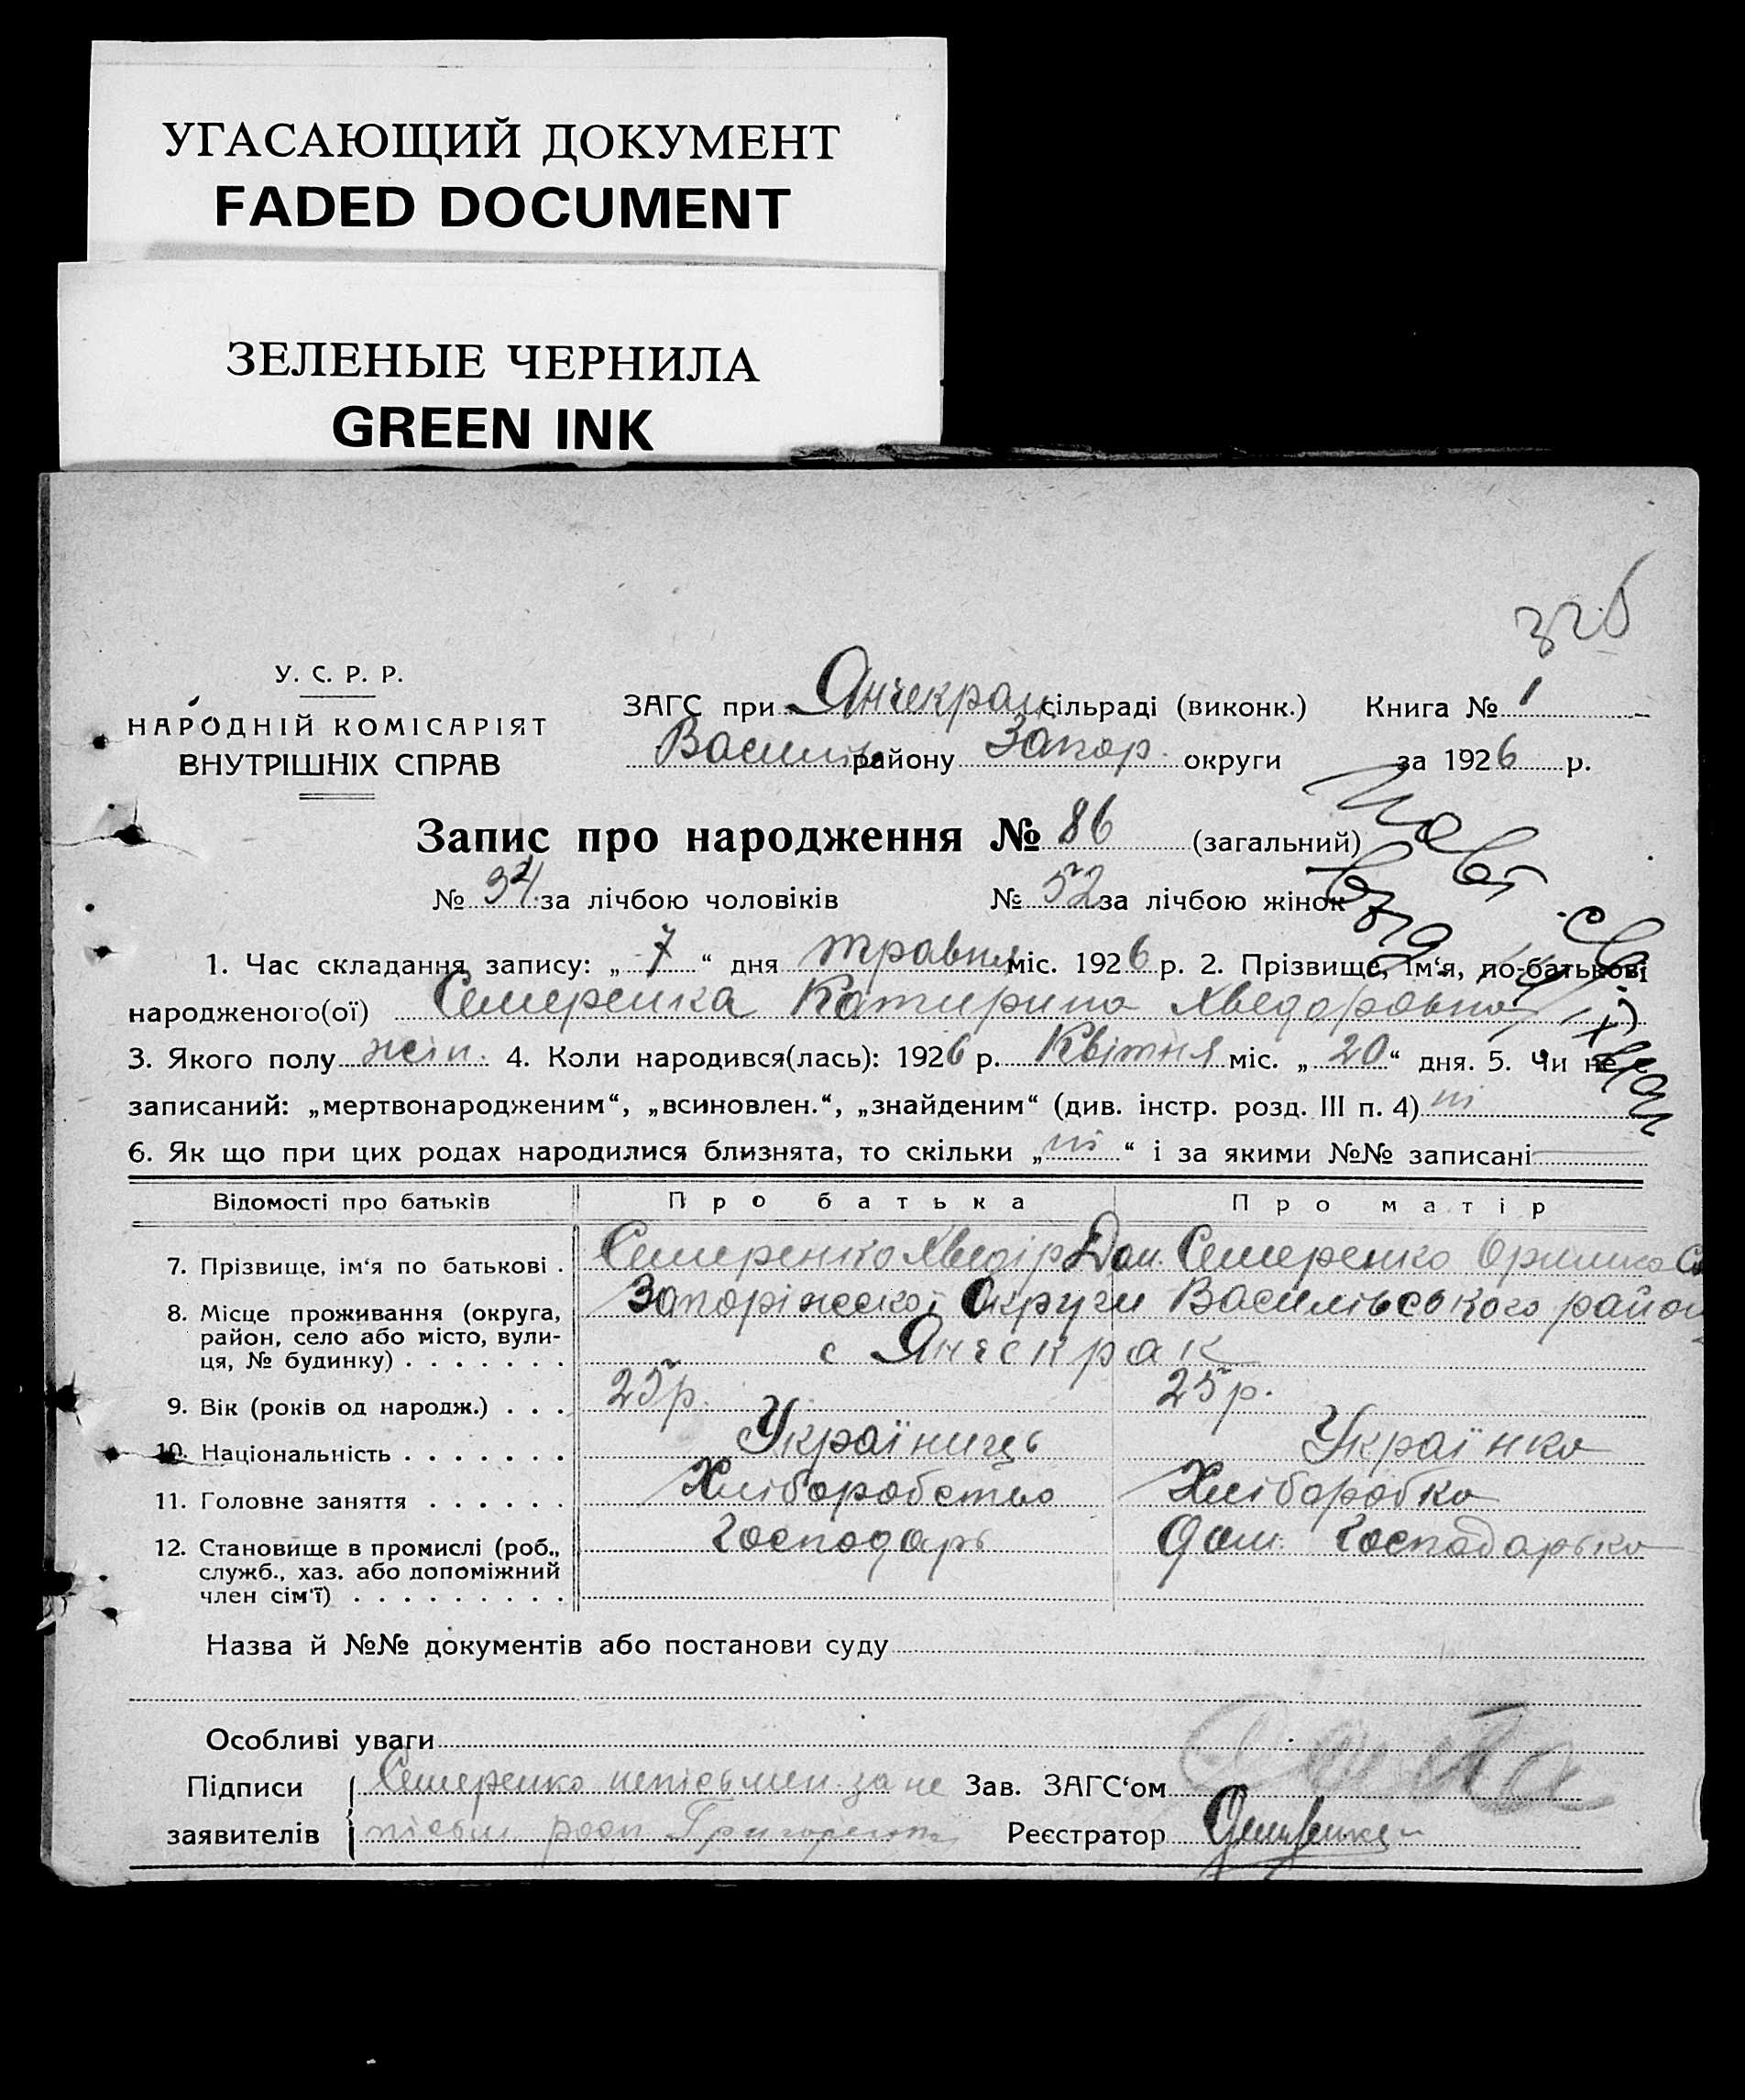 УГАСАЮЩИЙ ДОКУМЕНТ
FADED DOCUMENT
ЗЕЛЕНЫЕ ЧЕРНИЛА
GREEN INK
326
У. С. Р. Р.
НАРОДНІЙ КОМІСАРІЯТ
ВНУТРІШНІХ СПРАВ
ЗАГС при Янчекрац сільраді (виконк.) Книга № 1
Василів району Запор. округи за 1926 р.
Запис про народження № 86 (загальний)
№ 34 за лічбою чоловіків № 52 за лічбою жінок
1. Час складання запису: „ 7 “ дня травня міс. 1926 р. 2. Прізвище, ім‘я, по-батькові
народженого(ої) Семеренка Катирина Хведоровна
3. Якого полу жін. 4. Коли народився(лась): 1926 р. Квітня міс. „ 20 “ дня. 5. Чи не є
записаний: „мертвонародженим“, „всиновлен.“, „знайденим“ (див. інстр. розд. III п. 4) ні
6. Як що при цих родах народилися близнята, то скільки „ ні “ і за якими №№ записані
Відомості про батьків Про батька Про матір
7. Прізвище, ім‘я по батькові . Семеренко Хведір Дам. Семеренко Оришка
8. Місце проживання (округа, Запоріжської Округи Василівського району
район, село або місто, вули-
ця, № будинку) . . . . . . . с Янчекрак
9. Вік (років од народж.) . . . 25 р. 25 р.
10. Національність . . . . . . . Україниць Українка
11. Головне заняття . . . . . . Хліборобство Хліборобка
12. Становище в промислі (роб., Господарь дом. Господарька
служб., хаз. або допоміжний
член сім‘ї) . . . . . . . . .
Назва й №№ документів або постанови суду
Особливі уваги
Підписи Семеренко непісьмен. за не Зав. ЗАГС‘ом
заявителів пісьм. росп. Григоренко Реєстратор